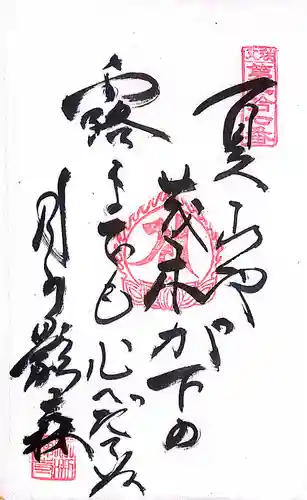 夏山や
茂木が下の
露までも
心へだてぬ
月の影森